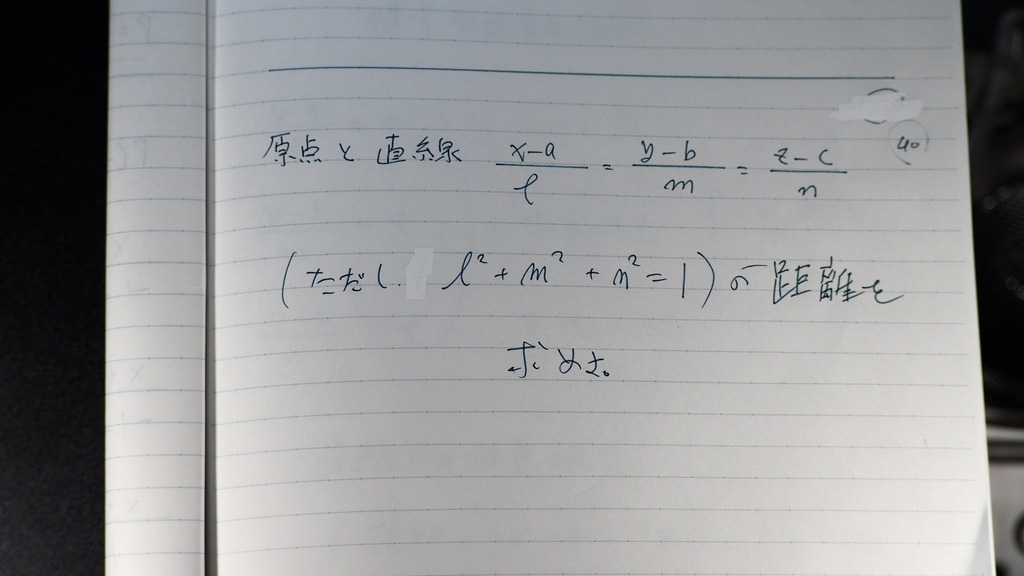 40
原点と直線 x-a/l = y-b/m = z-c/n
(ただし. l²+m²+n²=1)の距離を
求めよ。